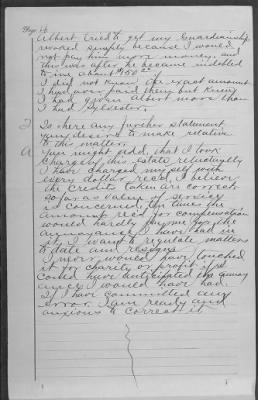 Page 16
Albert tried to get my Guardianship
revoked simply because I would
not pay him more money, and
this was after he became indebted
to me about $150.00
I did not know the exact amount
I had over paid them but knew
I had given Albert more than
I had Sylvester.
Is there any further statement
you desire to make relative
to this matter.
A You might add, that I took
charge of this estate reluctantly
I have charged myself with
every dollar recd. I believe
the credits taken are correct.
So far as value of service
is concerned ten times the
amount recd for compensation
would hardly pay me for the
annoyance I have had in
it. I want to regulate matters
to date and resign.
I never would have touched
it for charity or profit if I
could have anticipated the annoy
ance I would have had.
If I have committed any
error I am ready and
anxious to correct it.